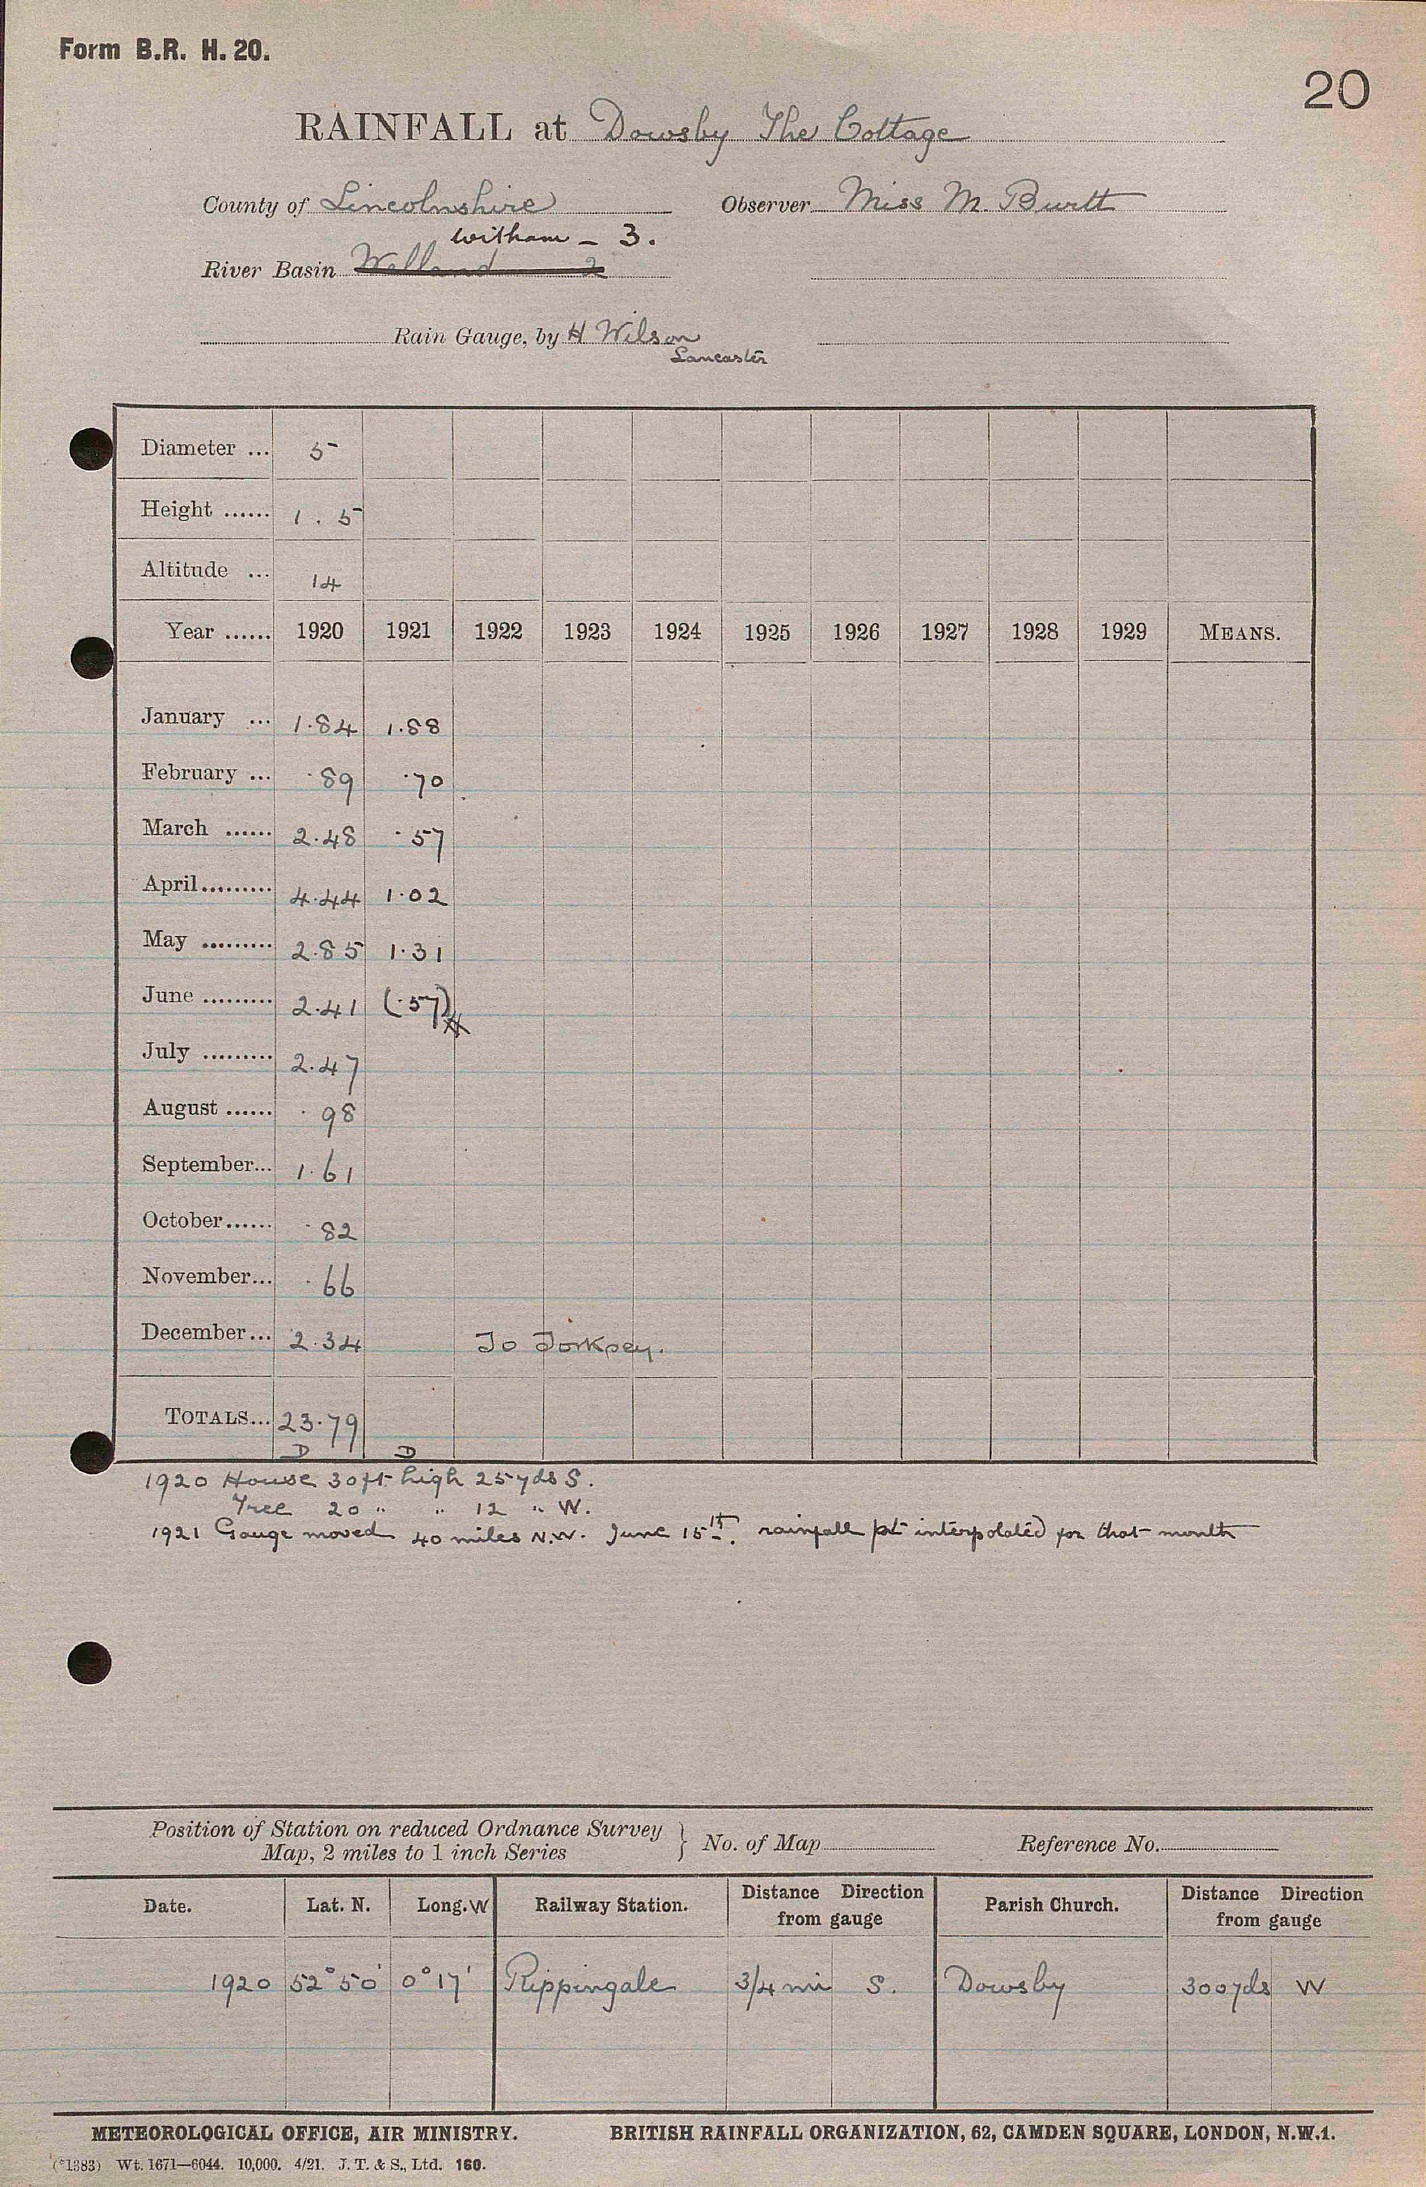 Form B.R. H. 20.
20
RAINFALL at Dowsby The Cottage
County of Lincolnshire Observer Miss M. Burtt
Witham - 3.
River Basin Welland 2
Rain Gauge, by H Wilson
Lancaster
Diameter ... 5
Height ...... 1.5
Altitude ... 14
Year ...... 1920 1921 1922 1923 1924 1925 1926 1927 1928 1929 MEANS.
January ... 1.84 1.88
February ... .89 .70
March ...... 2.48 .57
April......... 4.44 1.02
May ......... 2.85 1.31
June ......... 2.41 (.57)
July ......... 2.47
August ...... .98
September... 1.61
October...... .82
November... .66
December... 2.34 To Torksey.
TOTALS... 23.79
D D
1920 House 30ft high 25yds S.
Tree 20 " " 12 " W.
1921 Gauge moved 40 miles N.W. June 15th. rainfall pt interpolated for that month
Position of Station on reduced Ordnance Survey
Map, 2 miles to 1 inch Series } No. of Map Reference No.
Date. Lat. N. Long. W Railway Station. Distance Direction from gauge Parish Church. Distance Direction from gauge
1920 52°50' 0°17' Rippingale 3/4 mi S. Dowsby 300yds W
METEOROLOGICAL OFFICE, AIR MINISTRY. BRITISH RAINFALL ORGANIZATION, 62, CAMDEN SQUARE, LONDON, N.W.1.
(*1383) Wt. 1671—6044. 10,000. 4/21. J. T. & S., Ltd. 160.